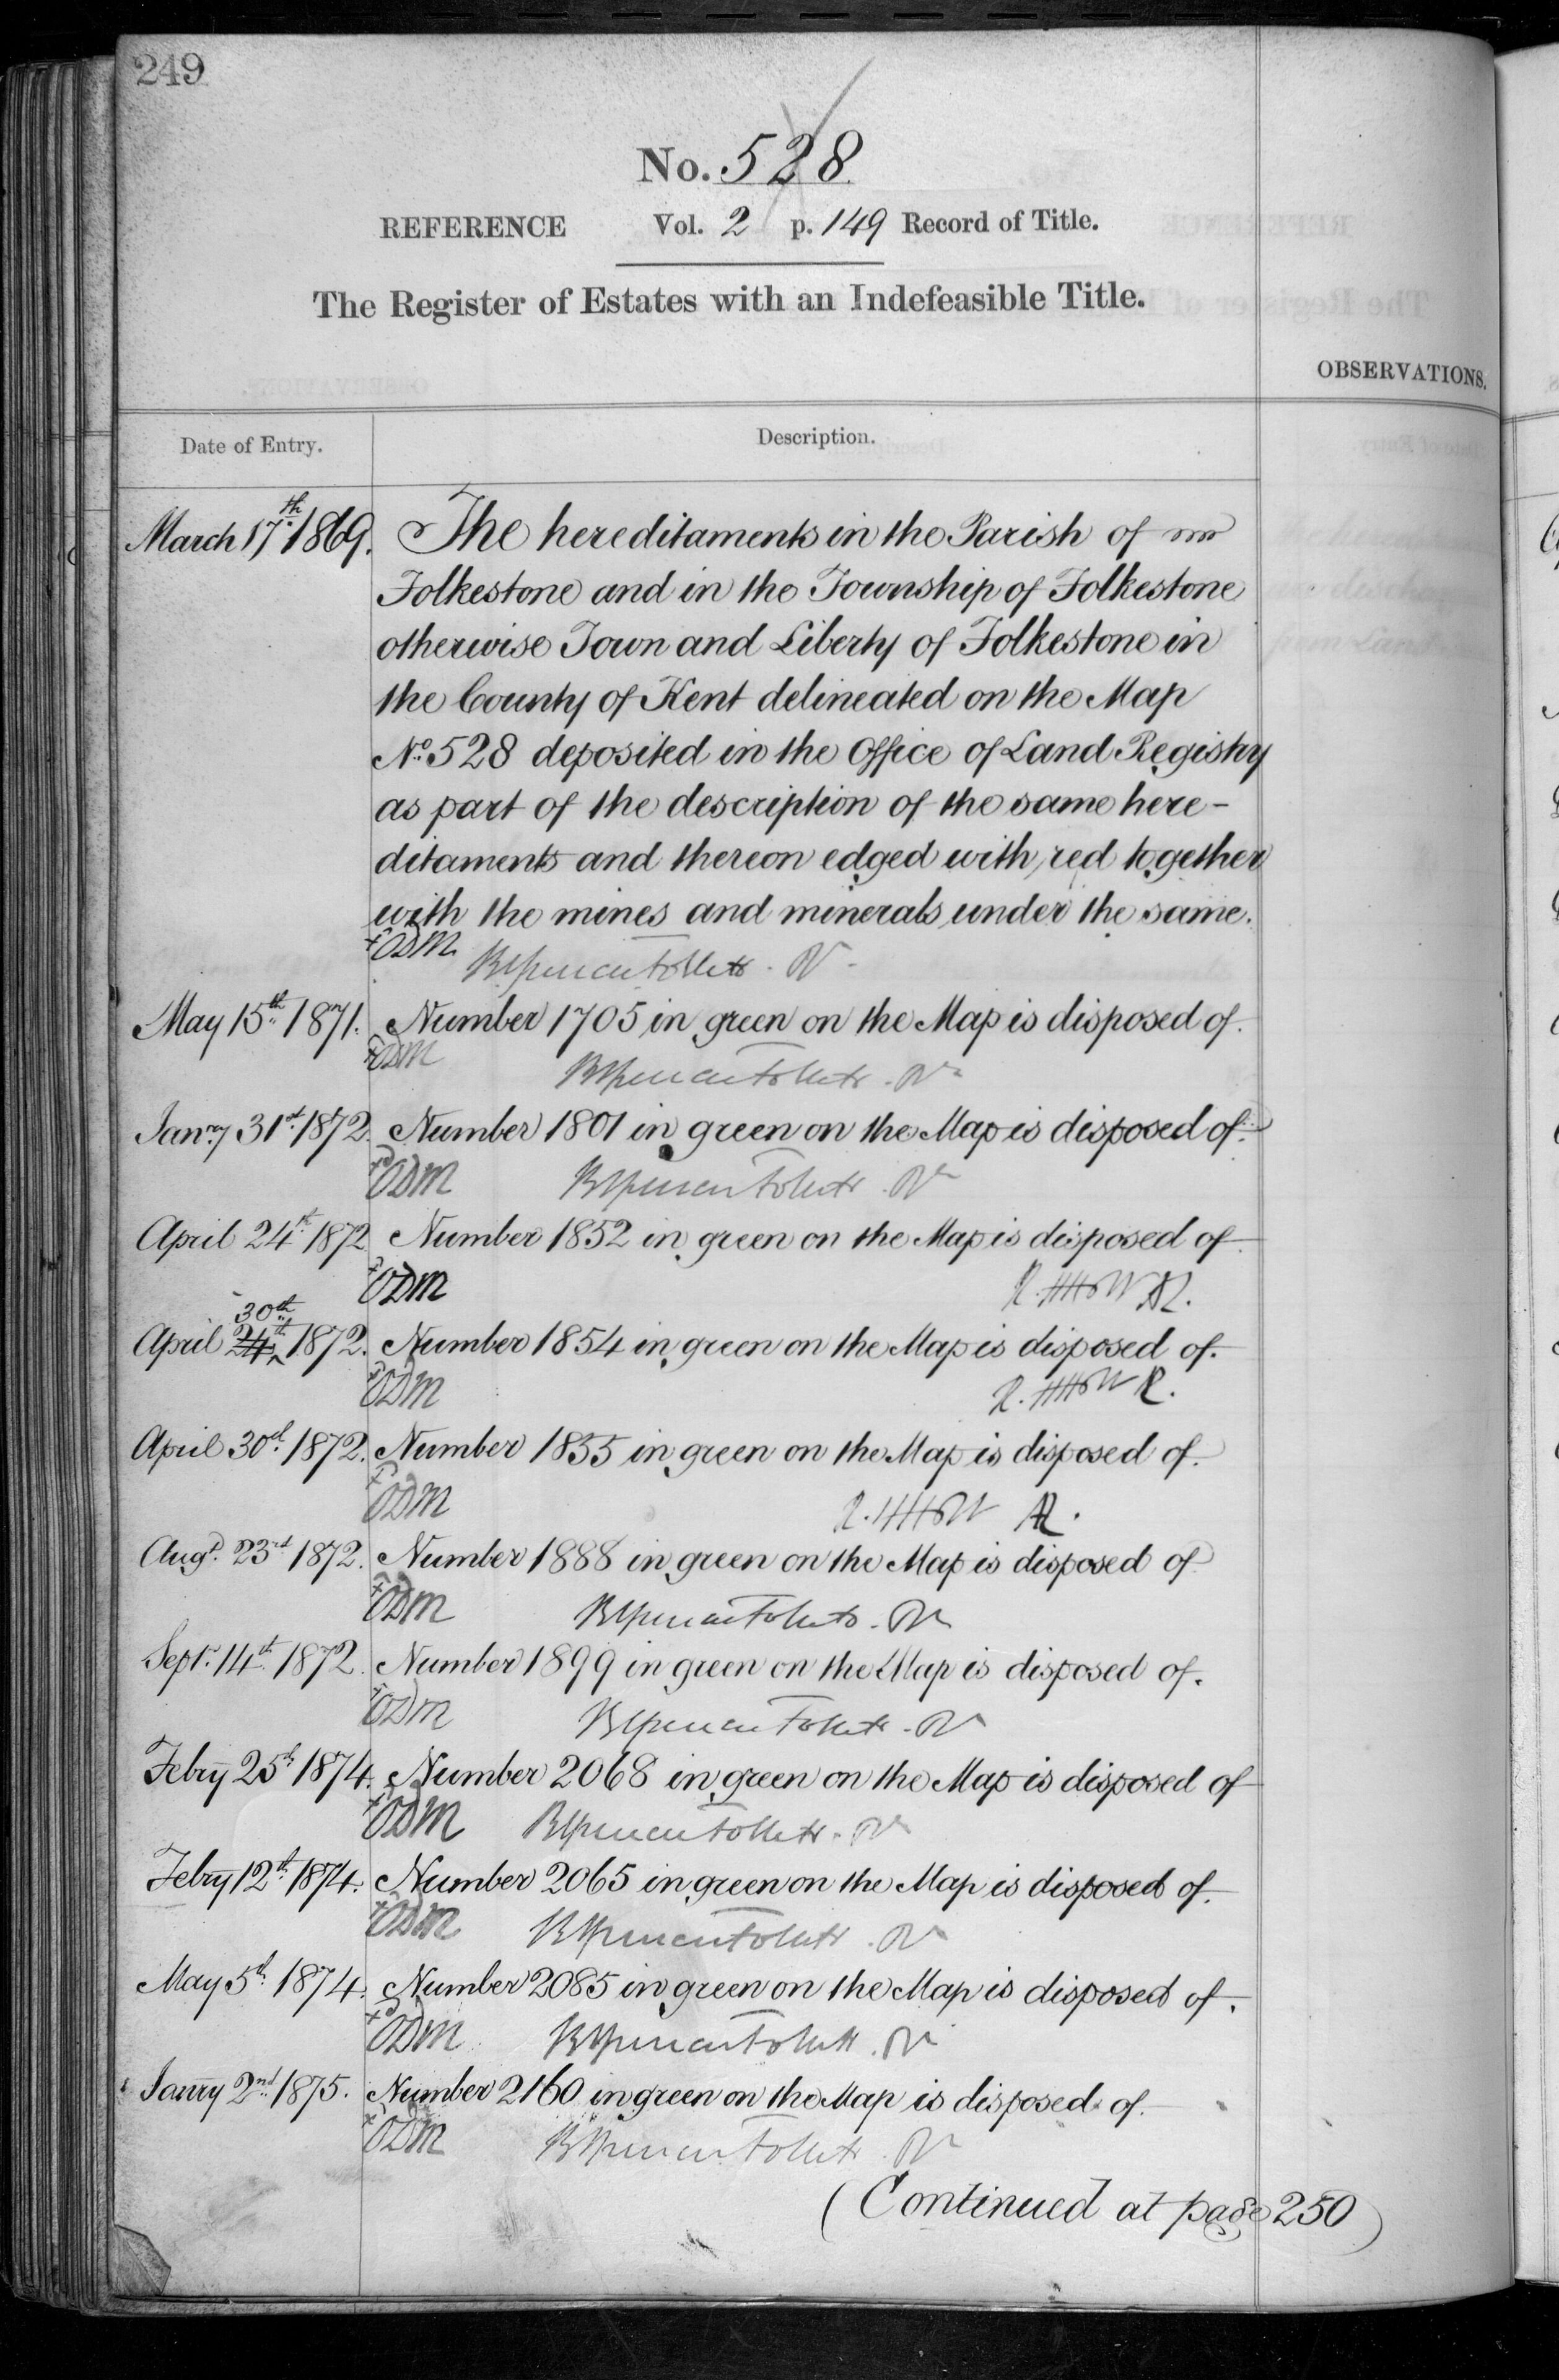 249
No. 528
REFERENCE Vol. 2 p. 149 Record of Title.
The Register of Estates with an Indefeasible Title.
OBSERVATIONS.
Date of Entry. Description.
March 17th 1869. The hereditaments in the Parish of
Folkestone and in the Township of Folkestone
otherwise Town and Liberty of Folkestone in
the County of Kent delineated on the Map
No. 528 deposited in the Office of Land Registry
as part of the description of the same here-
ditaments and thereon edged with red together
with the mines and minerals under the same.
ODM
May 15th 1871. Number 1705 in green on the Map is disposed of.
ODM
Janry 31st 1872. Number 1801 in green on the Map is disposed of.
ODM
April 24th 1872 Number 1852 in green on the Map is disposed of
ODM
30th
April 24th 1872. Number 1854 in green on the Map is disposed of.
ODM
April 30th 1872. Number 1855 in green on the Map is disposed of.
ODM
Augt. 23rd 1872. Number 1888 in green on the Map is disposed of
ODM
Septr. 14th 1872. Number 1899 in green on the Map is disposed of.
ODM
Febry 25th 1874. Number 2068 in green on the Map is disposed of
ODM
Febry 12th 1874. Number 2065 in green on the Map is disposed of.
ODM
May 5th 1874. Number 2085 in green on the Map is disposed of.
ODM
Janry 2nd 1875. Number 2160 in green on the Map is disposed of.
ODM
(Continued at page 250)